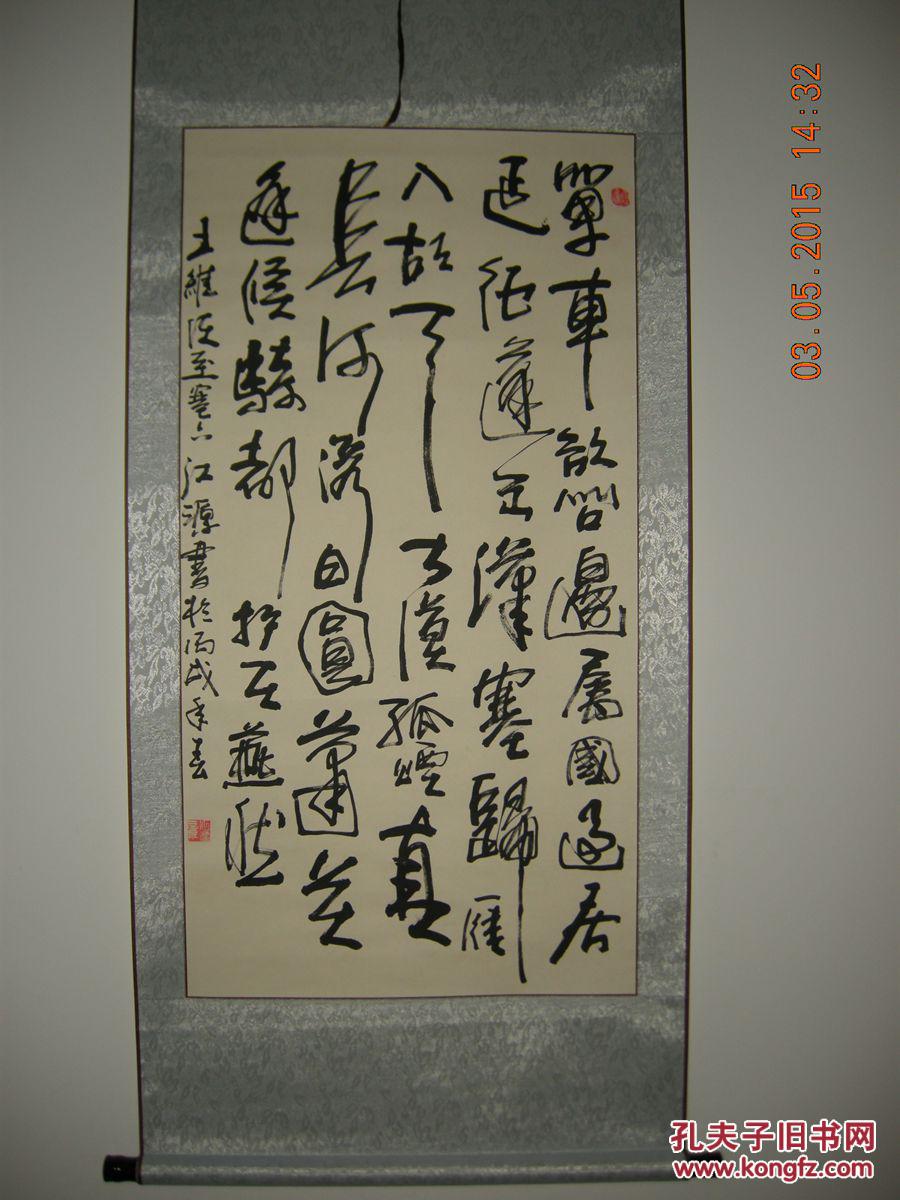 單車欲問邊屬國過居
延征蓬出漢塞歸雁
入胡天大漠孤煙直
長河落日圓蕭關
逢候騎都護在燕然
王維使至塞上江源書於丙戌年春
03.05.2015 14:32
孔夫子旧书网
www.kongfz.com